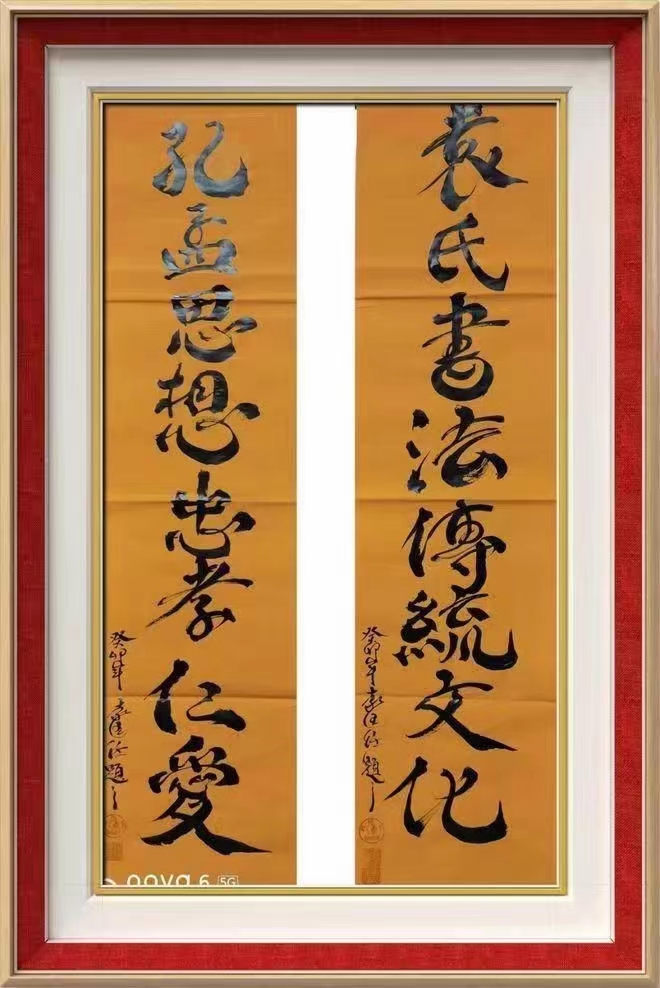 袁氏書法傳統文化
癸卯年袁
題
孔孟思想忠孝仁愛
癸卯年
題
nova 6 5G